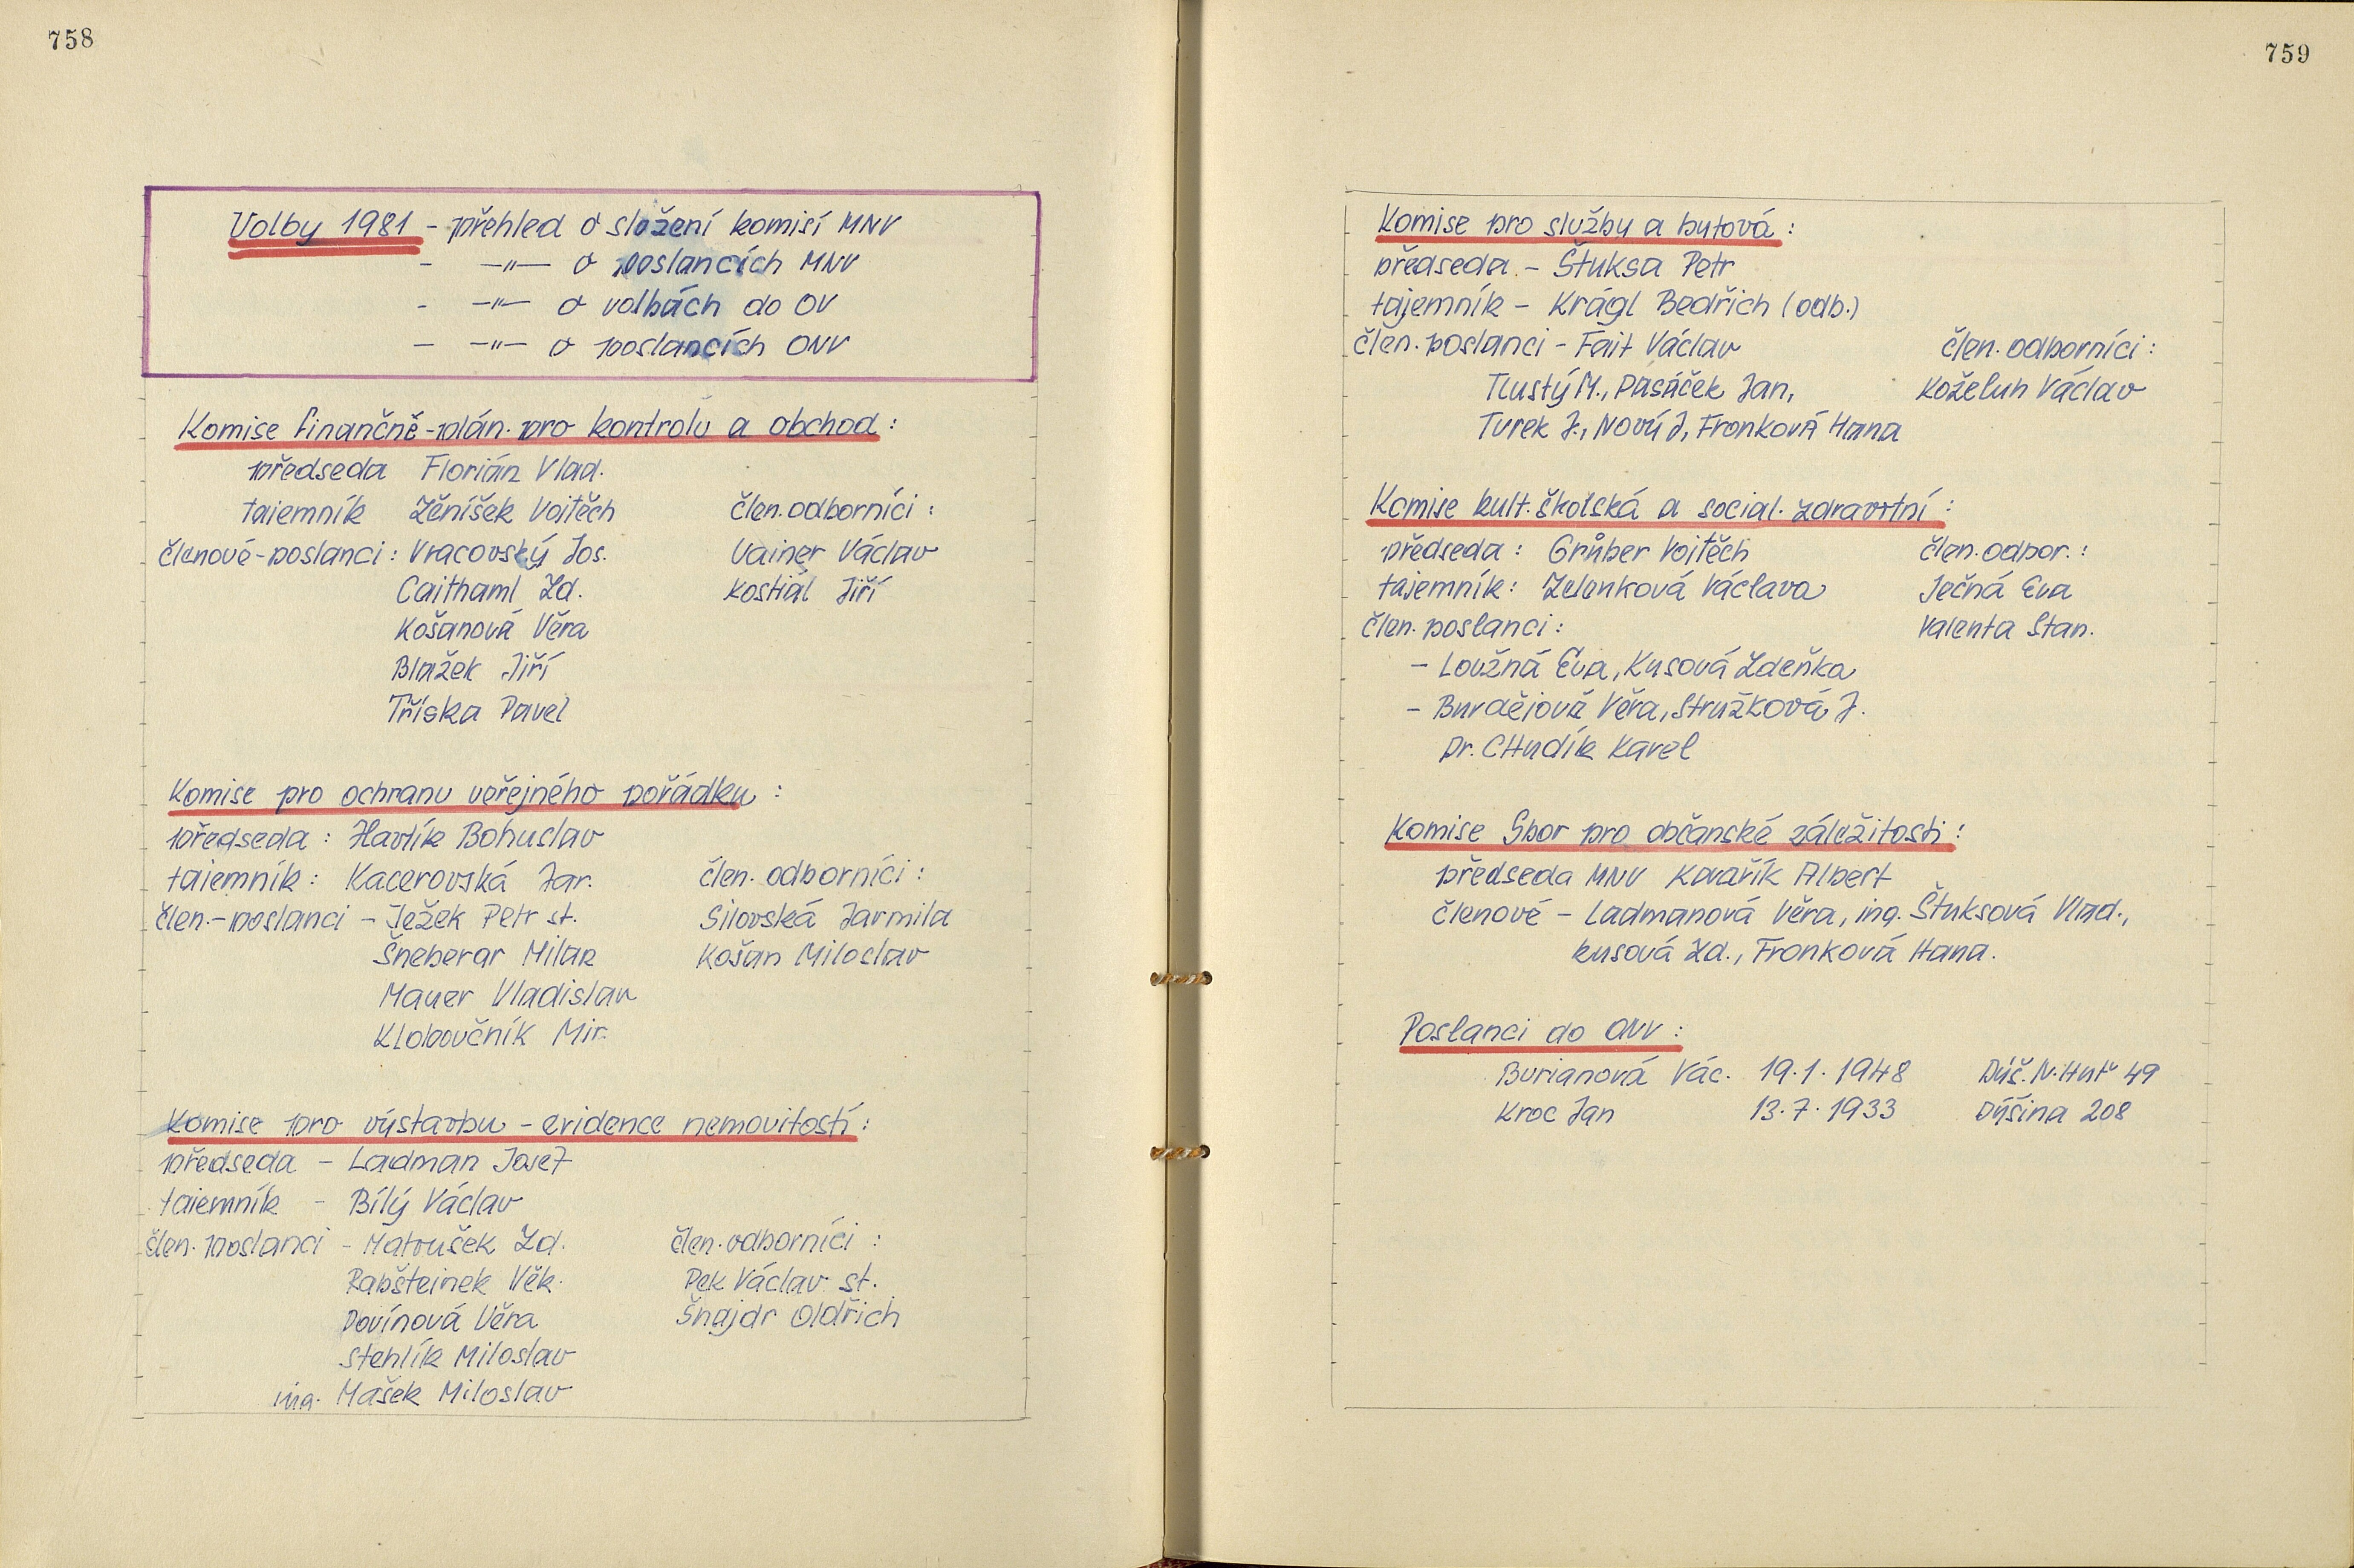 758
Volby 1981 - přehled o složení komisí MNV
- -"- o poslancích MNV
- -"- o volbách do OV
- -"- o poslancích ONV
Komise finančně-plán. pro kontrolu a obchod:
předseda Florián Vlad.
tajemník Ženíšek Vojtěch člen. odborníci:
členové-poslanci: Vracovský Jos. Vainer Václav
Caithaml Zd. Kostiál Jiří
Košanová Věra
Blažek Jiří
Tříska Pavel
Komise pro ochranu veřejného pořádku:
předseda: Havlík Bohuslav
tajemník: Kacerovská Jar. člen. odborníci:
člen.-poslanci - Ježek Petr st. Silovská Jarmila
Šneberar Milan Košan Miloslav
Mauer Vladislav
Kloboučník Mir.
Komise pro výstavbu - evidence nemovitostí:
předseda - Ladman Josef
tajemník - Bílý Václav
člen. poslanci - Matoušek Zd. člen. odborníci:
Rabšteinek Věk. Pek Václav st.
Dovínová Věra Šnajdr Oldřich
Stehlík Miloslav
ing. Mašek Miloslav
759
Komise pro služby a bytová:
předseda - Štuksa Petr
tajemník - Krágl Bedřich (odb.)
člen. poslanci - Fait Václav člen. odborníci:
Tlustý M., Pasáček Jan, Koželuh Václav
Turek J., Nový J, Fronková Hana
Komise kult. školská a social. zdravotní:
předseda: Grůber Vojtěch člen. odbor.:
tajemník: Zelenková Václava Ječná Eva
člen. poslanci: Valenta Stan.
- Loužná Eva, Kusová Zdeňka
- Burdějová Věra, Stružková J.
Dr. CHudík Karel
Komise Sbor pro občanské záležitosti:
předseda MNV Kovařík Albert
členové - Ladmanová Věra, ing. Štuksová Vlad.,
Kusová Zd., Fronková Hana.
Poslanci do ONV:
Burianová Vác. 19.1.1948 Dýš. N. Huť 49
Kroc Jan 13.7.1933 Dýšina 208